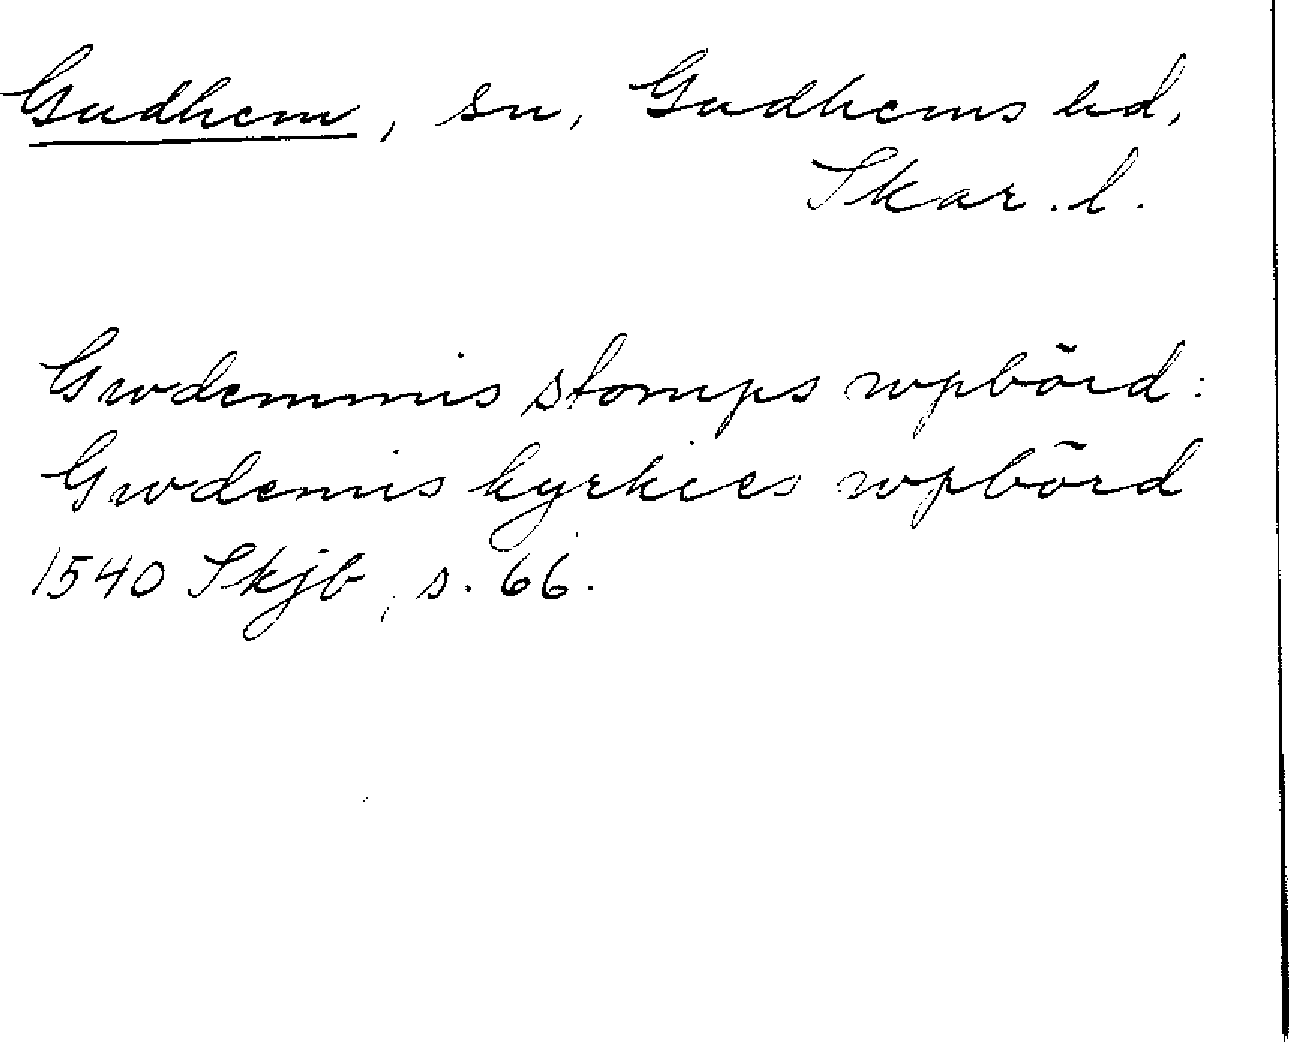 Gudhem, sn, Gudhems hd,
Skar. l.
Gwdemmis stomps wpbörd:
Gwdemis kyrkies wpbörd
1540 Skjb, s. 66.